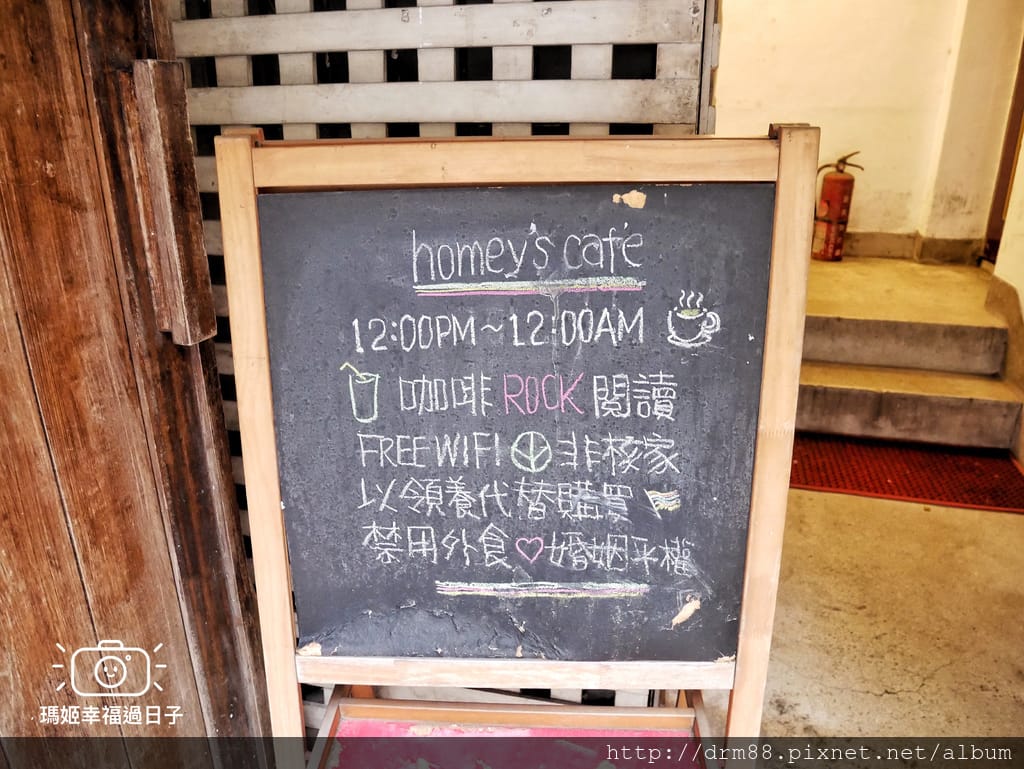 homey's café
12:00PM~12:00AM
咖啡 ROCK 閱讀
FREE WIFI 非核家
以領養代替購買
禁用外食♡婚姻平權
瑪姬幸福過日子
http://drm88.pixnet.net/album